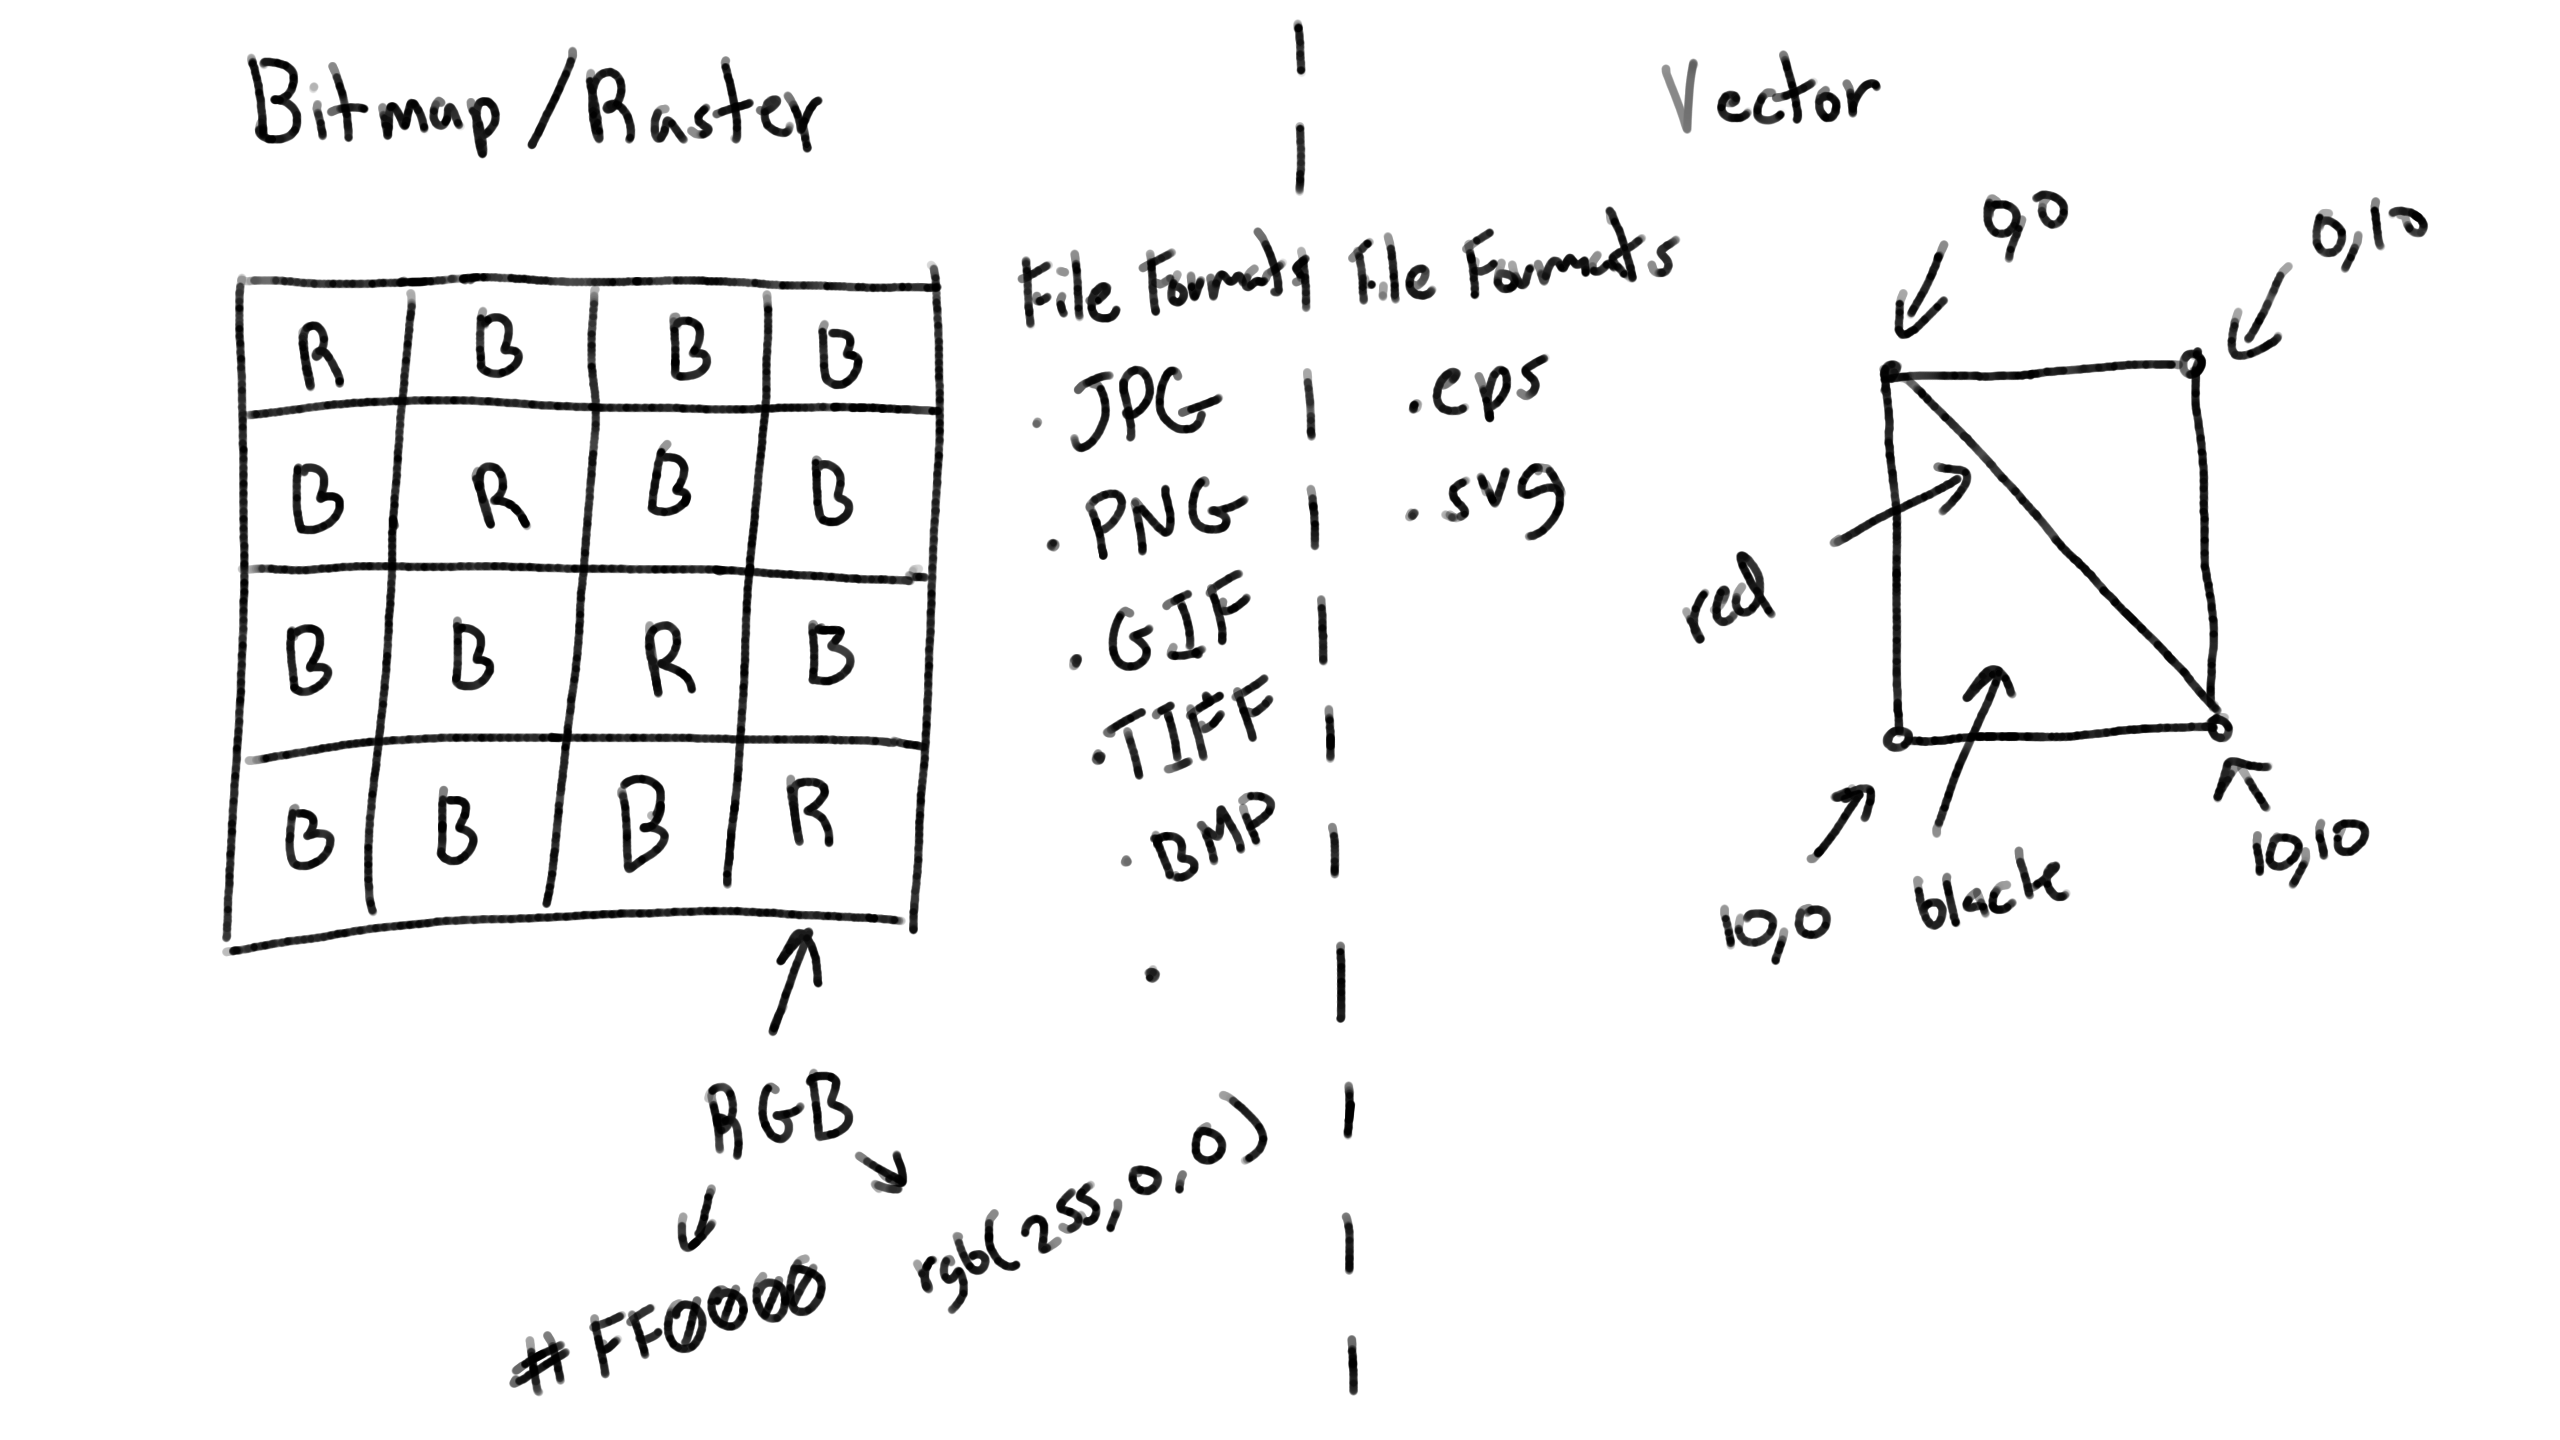 Bitmap/Raster
R B B B
B R B B
B B R B
B B B R
RGB
#FF0000
rgb(255,0,0)
File Formats
· JPG
· PNG
· GIF
· TIFF
· BMP
·
Vector
File Formats
· eps
· svg
0,0
0,10
red
10,0
black
10,10